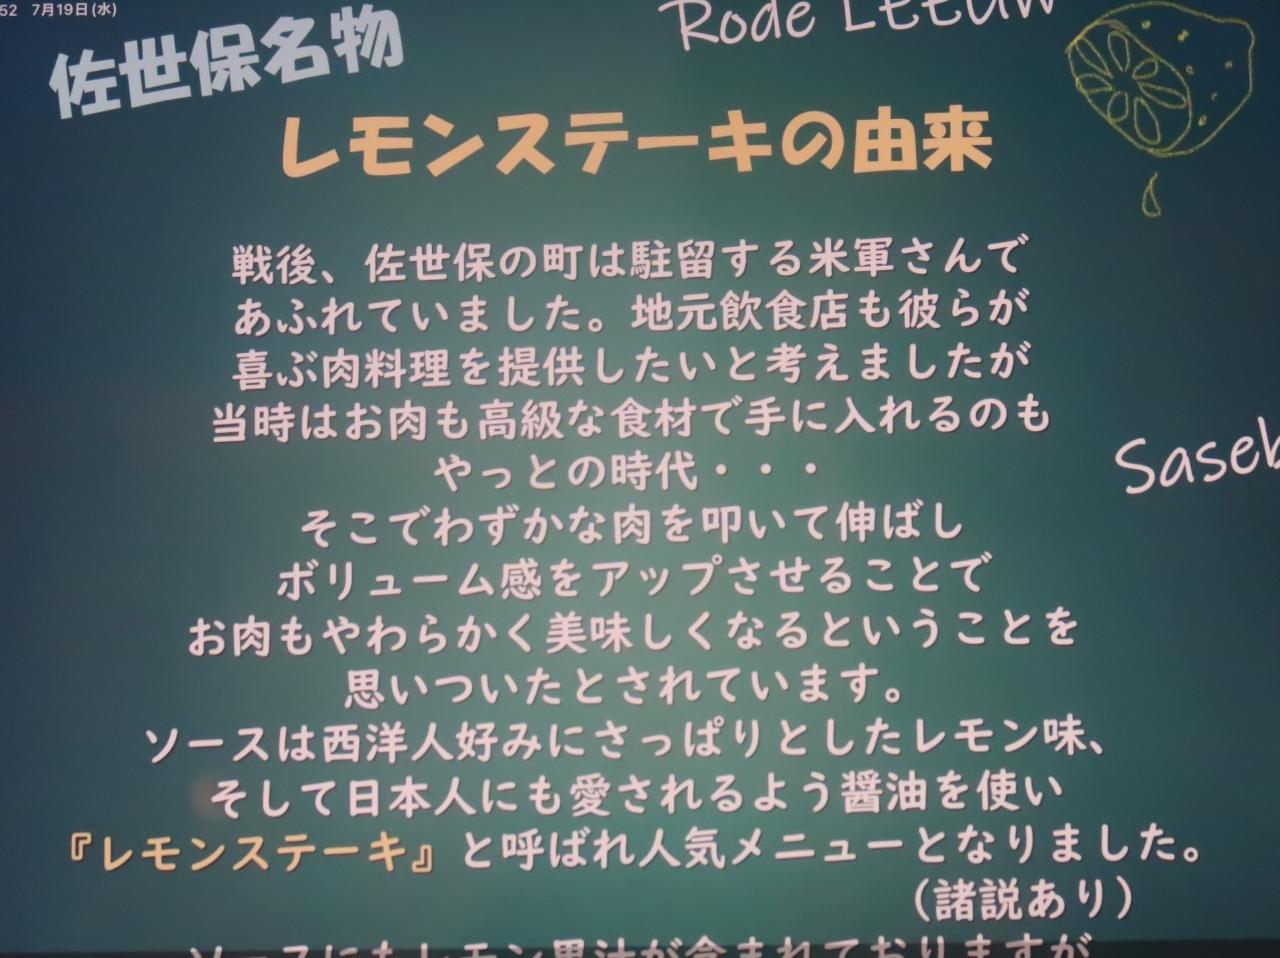 52 7月19日(水)
Rode LEEUW
佐世保名物
レモンステーキの由来
戦後、佐世保の町は駐留する米軍さんで
あふれていました。地元飲食店も彼らが
喜ぶ肉料理を提供したいと考えましたが
当時はお肉も高級な食材で手に入れるのも
やっとの時代・・・
そこでわずかな肉を叩いて伸ばし
ボリューム感をアップさせることで
お肉もやわらかく美味しくなるということを
思いついたとされています。
ソースは西洋人好みにさっぱりとしたレモン味、
そして日本人にも愛されるよう醤油を使い
『レモンステーキ』と呼ばれ人気メニューとなりました。
（諸説あり）
ソースにもレモン果汁が含まれておりますが
Saseb